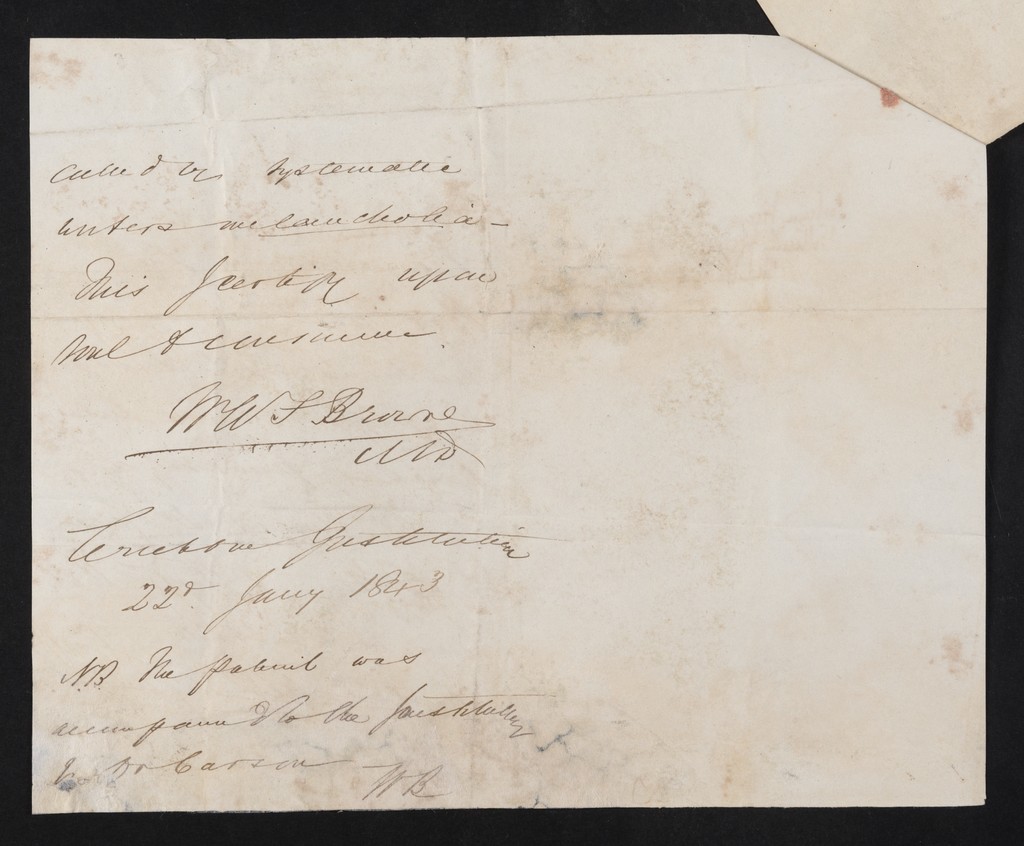 called by systematic
writers melancholia -
This I certify upon
soul & conscience.
W A F Browne
MD
Crichton Institution
22d Jany 1843
NB The patient was
accompanied to the Institution
by Dr Carson
WB